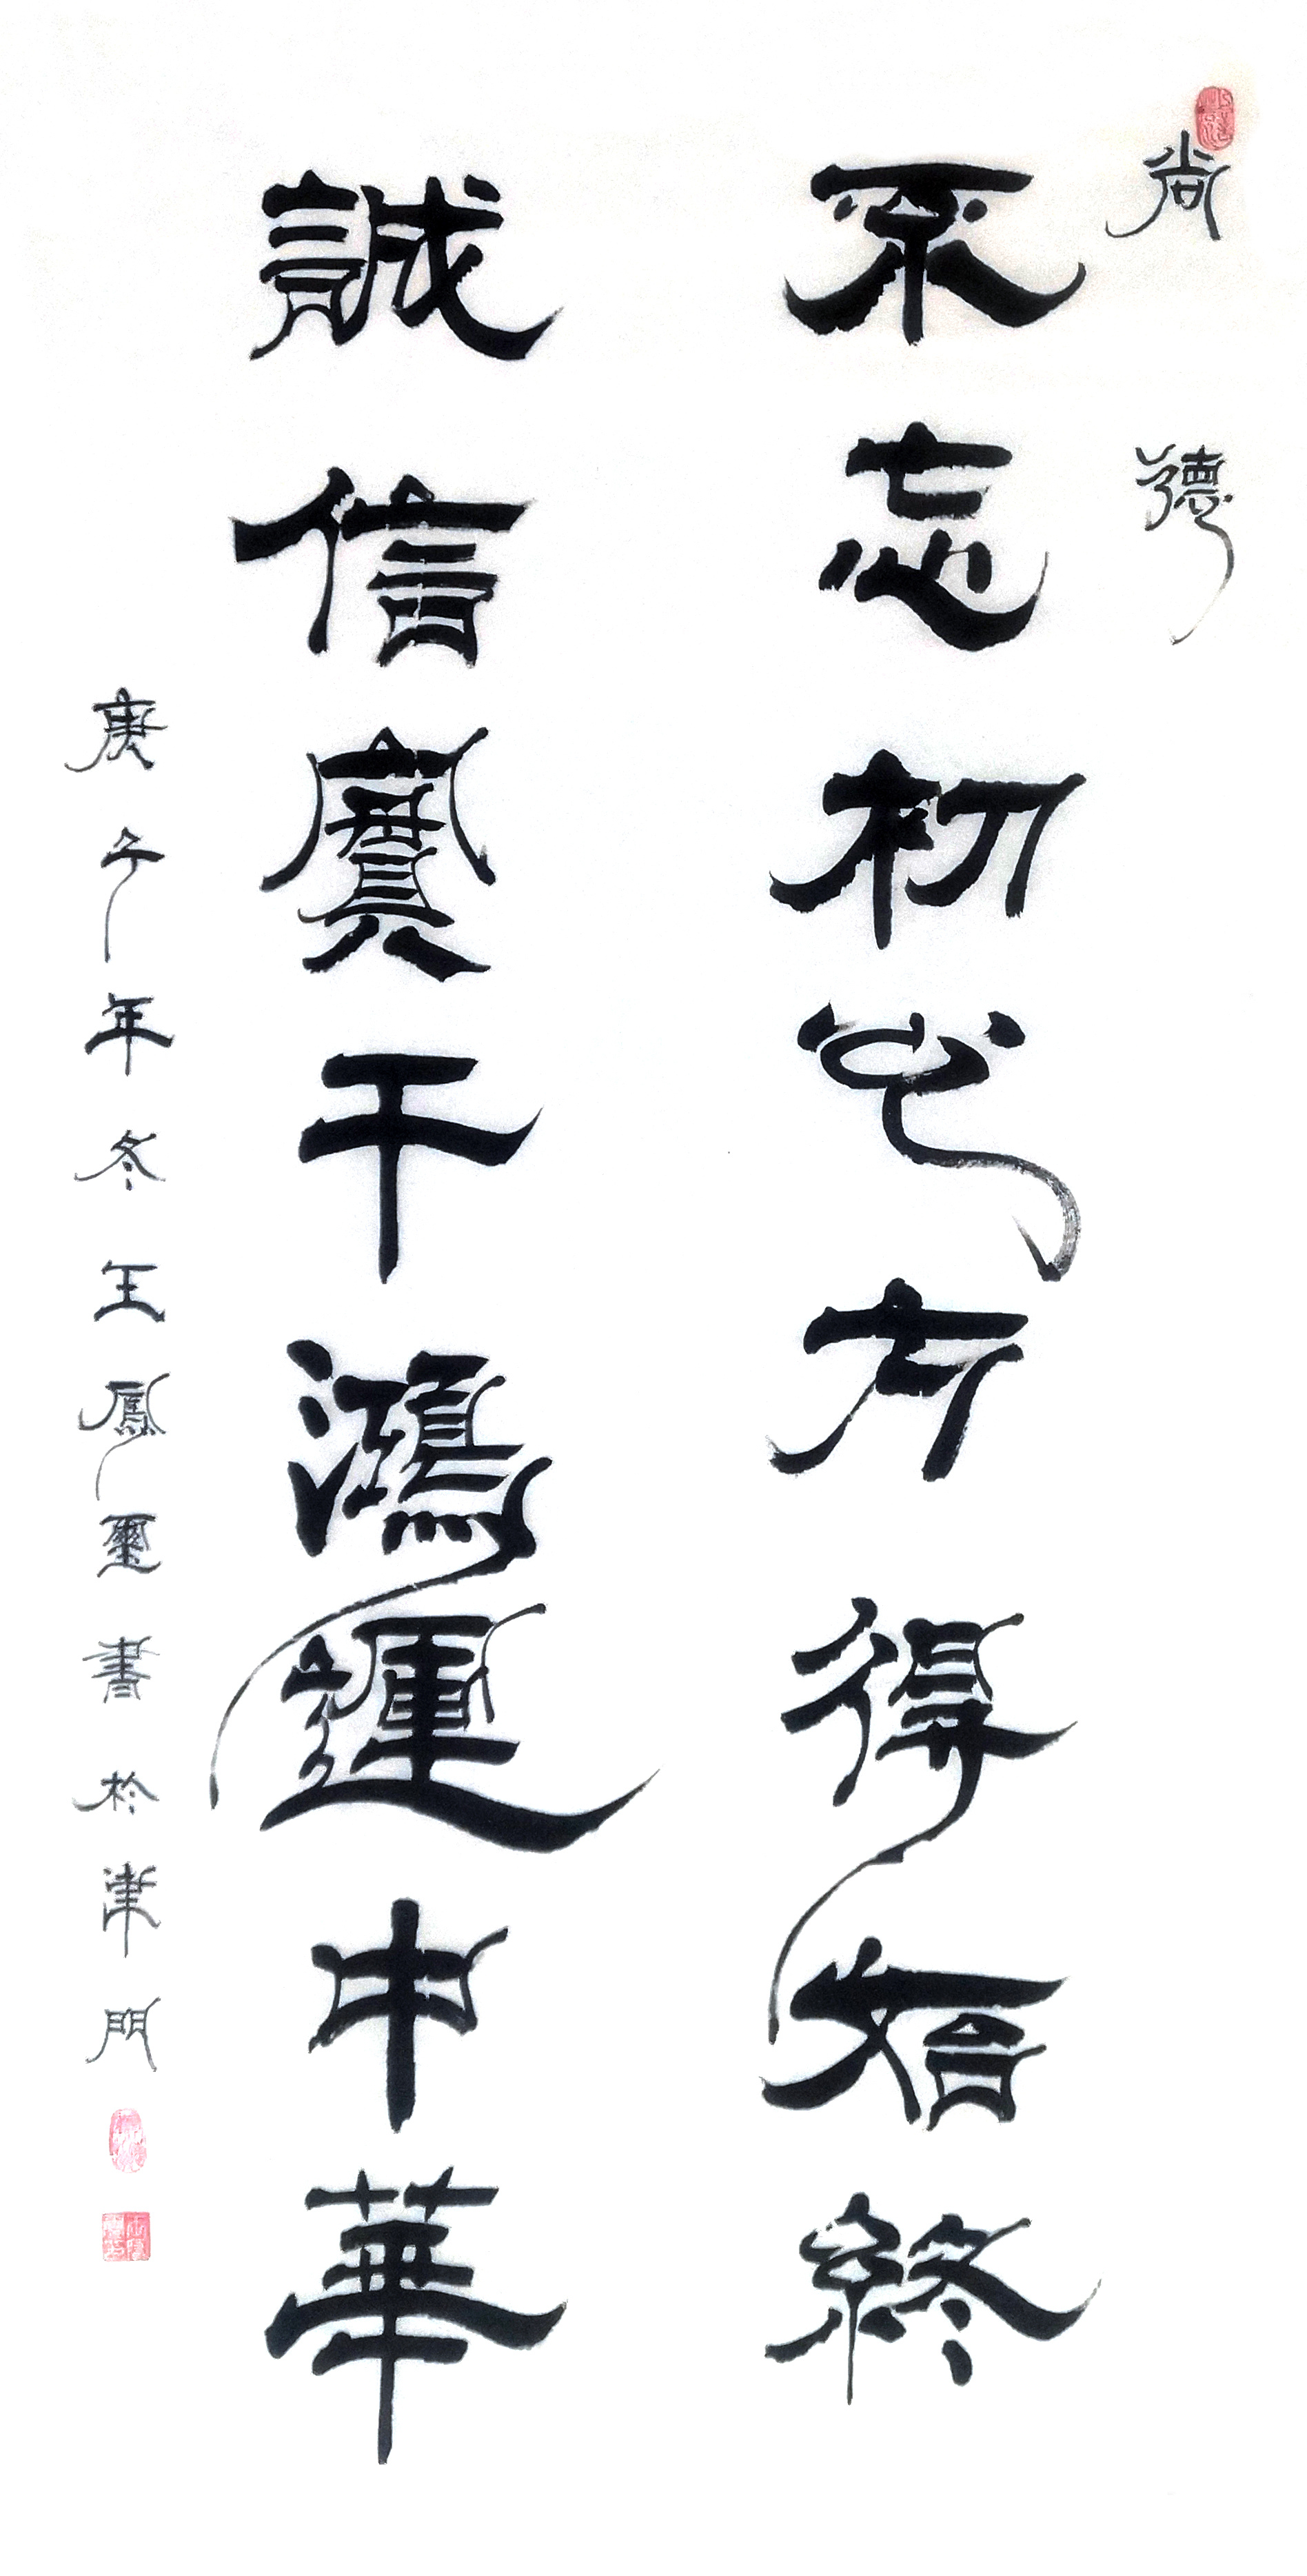 尚德
不忘初心方得始終
誠信實干鴻運中華
庚子年冬王鳳璽書於津門